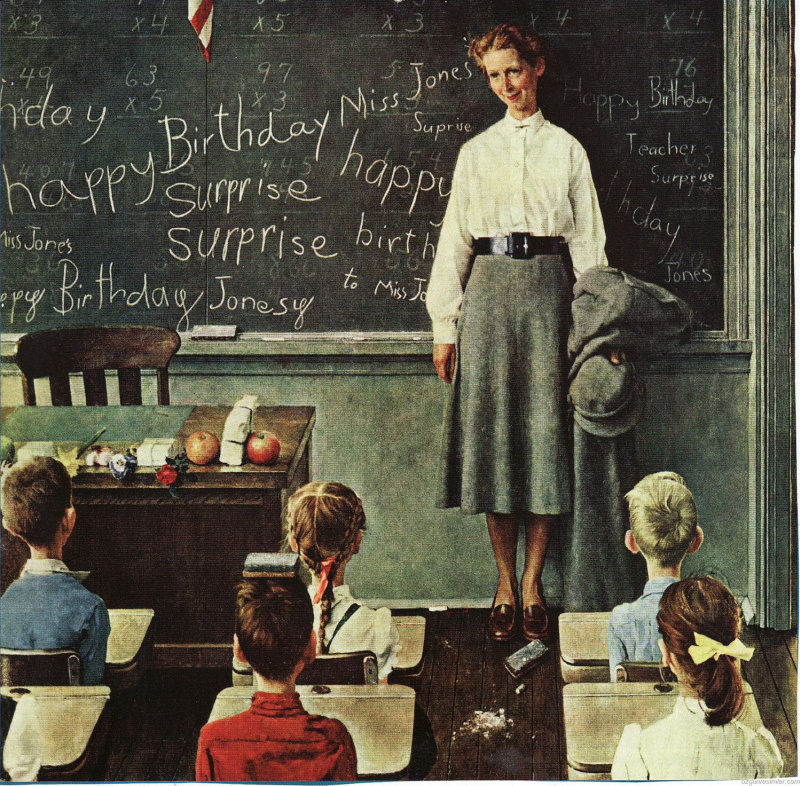 x3
x4
x5
x4
x4
49
63
97
5
76
x5
x3
hday
Birthday
Miss Jones
Suprise
Happy Birthday
happy
Surprise
happy
Teacher
Surprise
surprise
birth
hday
Miss Jone's
ppy Birthday Jonesy
to Miss Jo
Jones
ozgunresimler.com